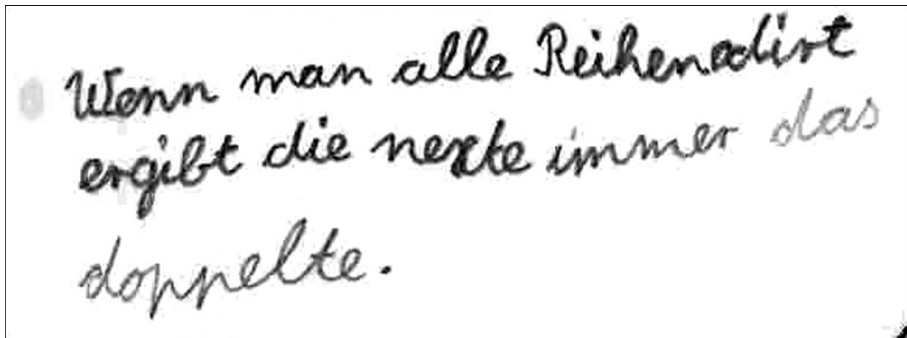 Wenn man alle Reihen adirt
ergibt die nexte immer das
doppelte.